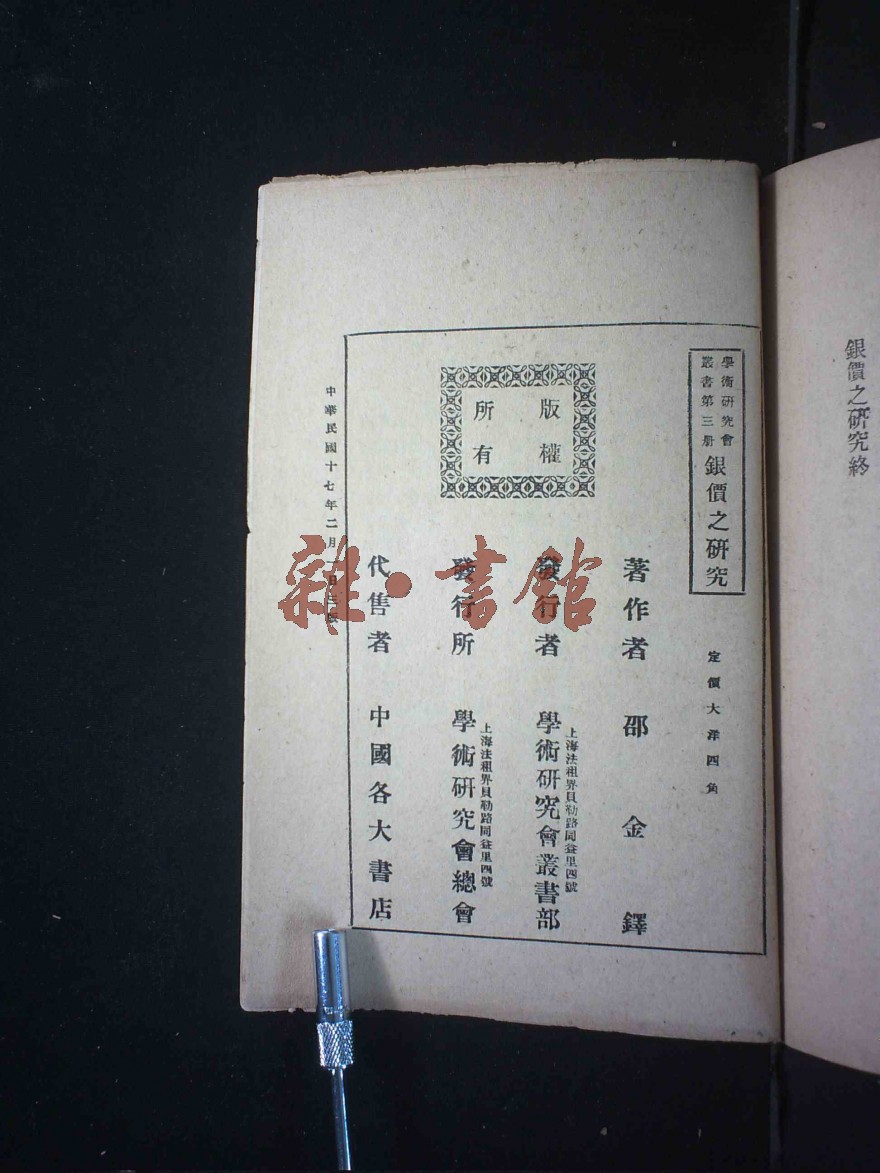 銀價之研究終
學術研究會
叢書第三册
銀價之研究
定價大洋四角
版權
所有
著作者 邵金鐸
發行者 學術研究會叢書部
上海法租界貝勒路同益里四號
發行所 學術研究會總會
上海法租界貝勒路同益里四號
代售者 中國各大書店
中華民國十七年二月
雜·書館